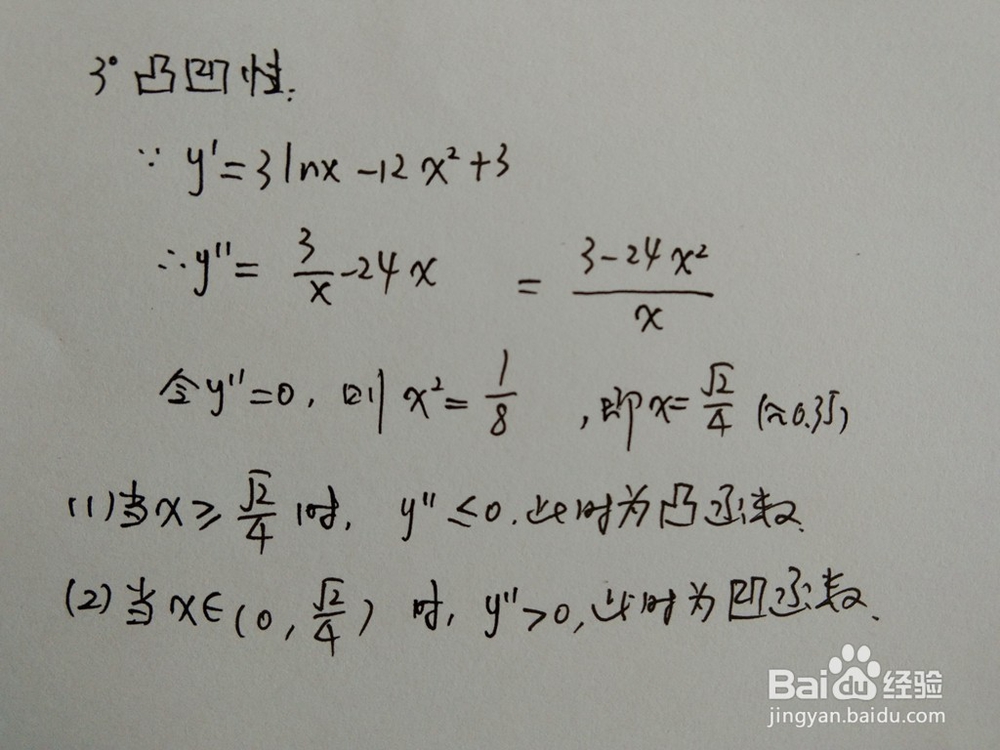 3° 凸凹性:
∵ y' = 3lnx - 12x² + 3
∴ y'' = 3/x - 24x = (3 - 24x²)/x
令y''=0, 则 x² = 1/8 , 即x = √2/4 (≈0.35)
(1)当x ≥ √2/4 时, y'' ≤ 0. 此时为凸函数.
(2)当x∈(0, √2/4) 时, y'' > 0, 此时为凹函数.
Baidu经验
jingyan.baidu.com